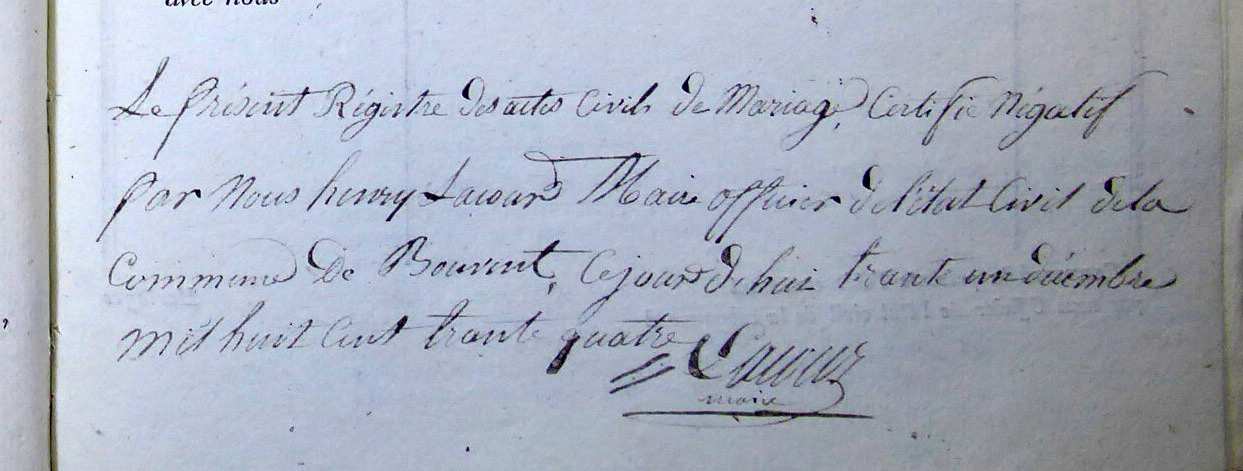 avec nous
Le présent Régistre des actes Civils de Mariage, Certifie Négatif
par Nous henry Lacour Maire officier de l'état Civil de la
Commune De Bourent, Ce jour d'hui trante un décembre
mil huit Cent trante quatre
Lacour
maire